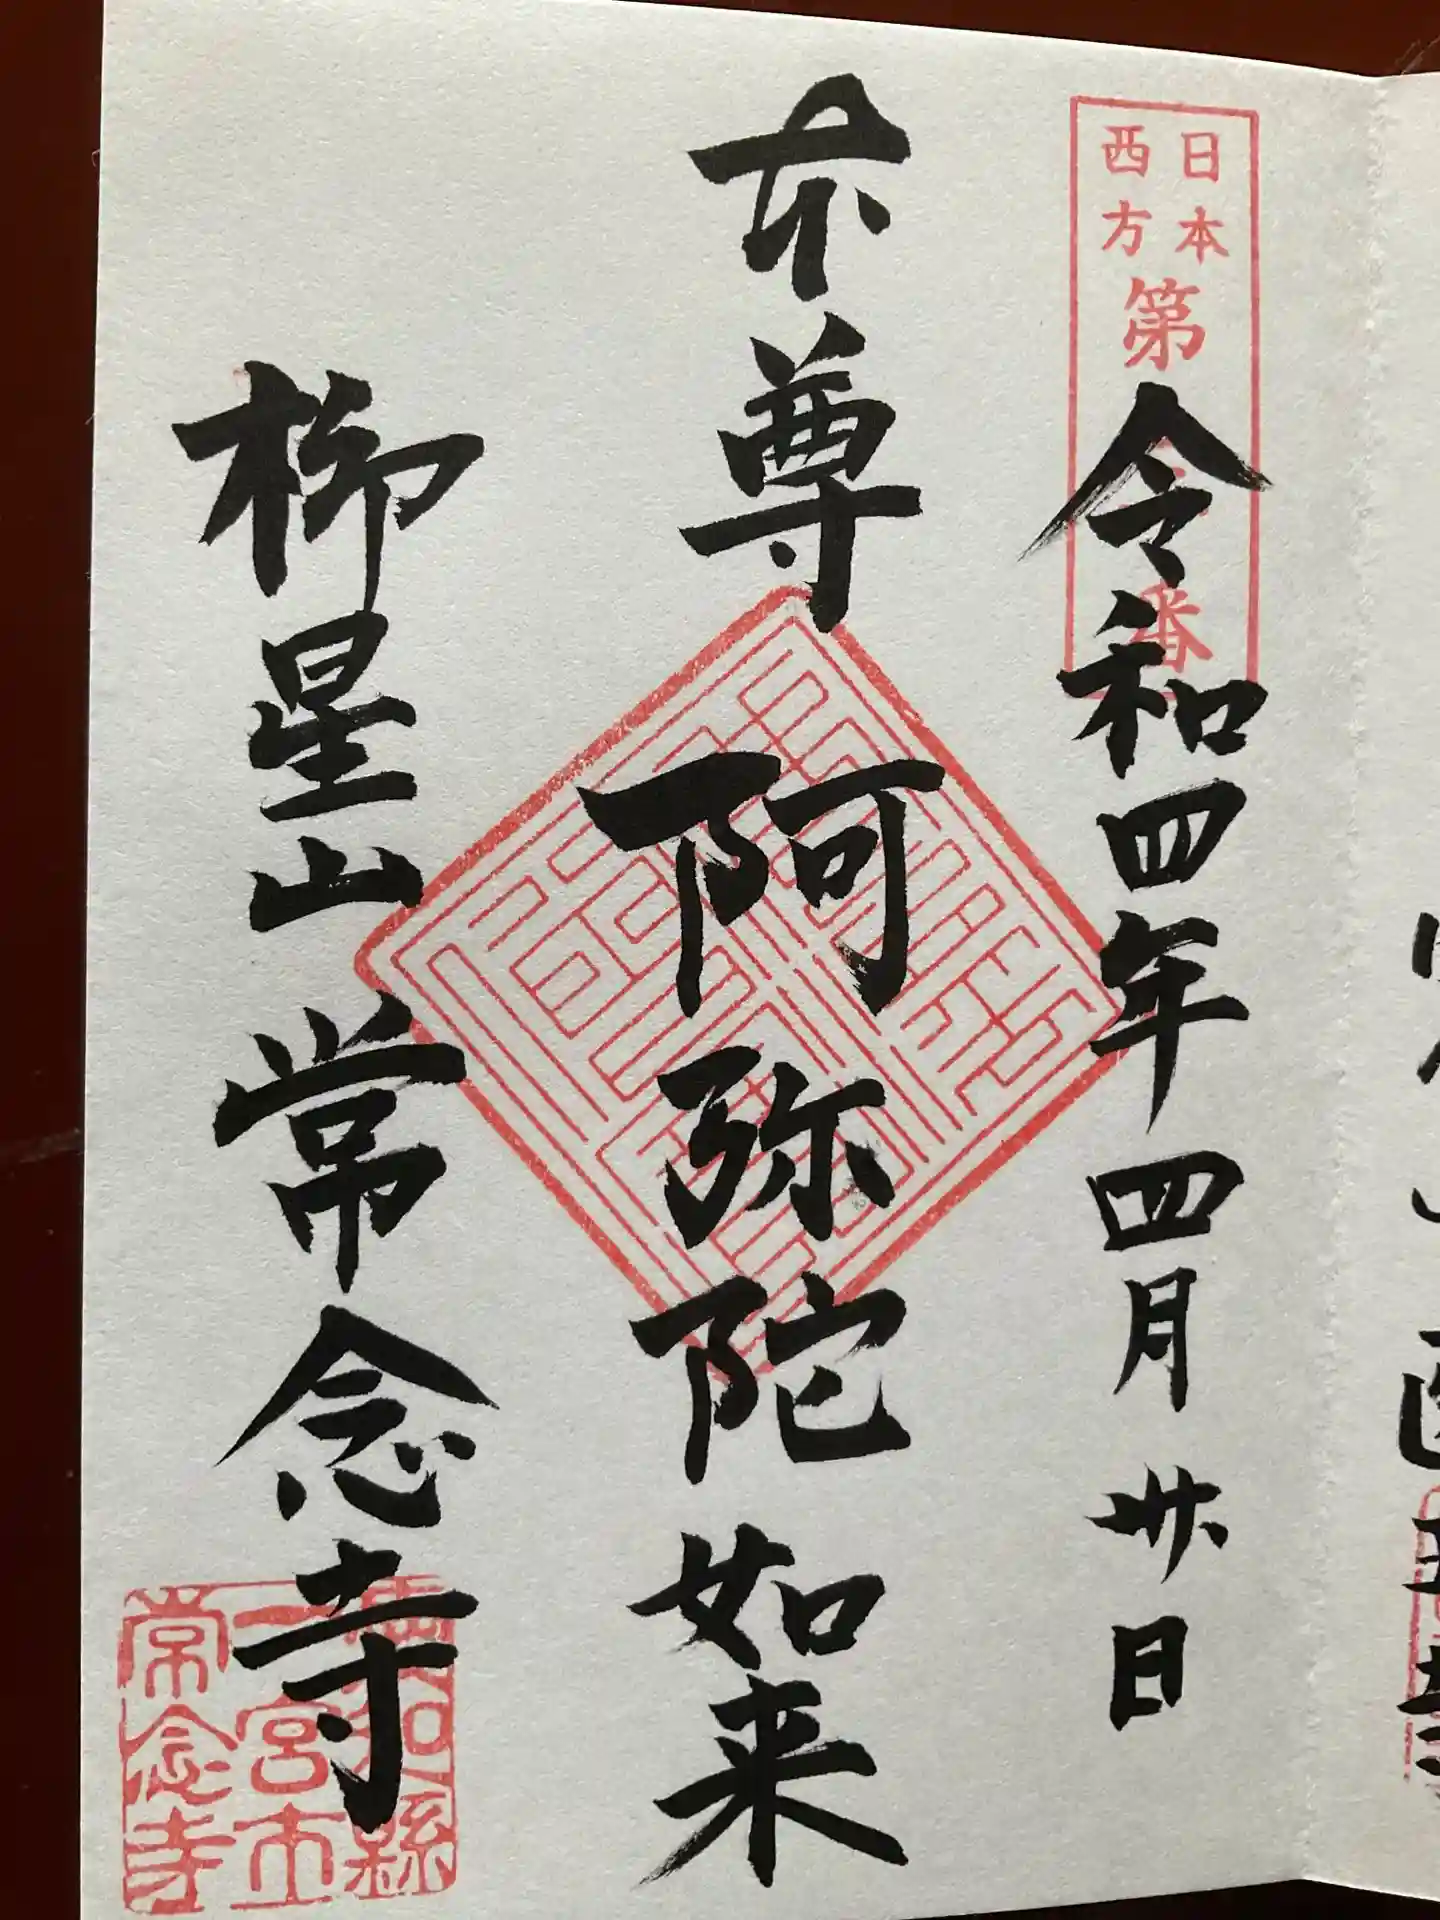 日本
西方
第
番
令和四年四月卅日
本尊 阿弥陀如来
柳星山 常念寺
一宮市
常念寺